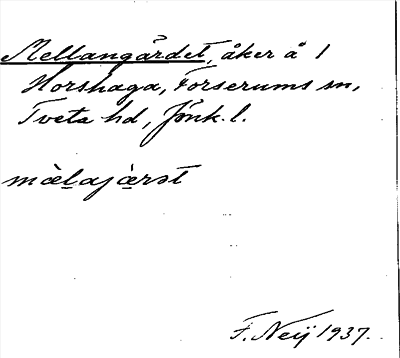 Mellangårdet, åker å 1
Horshaga, Forserums sn,
Tveta hd, Jönk. l.
mɑ̀elajæ̀rət
F. Neij 1937.